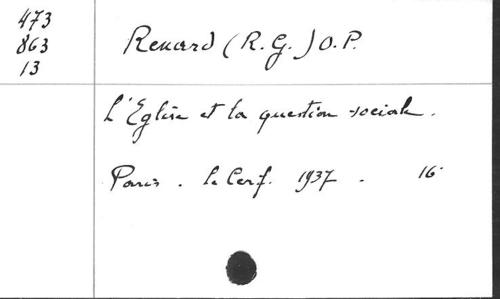 473
863
13
Renard (R.G.) O.P.
L'Eglise et la question sociale.
Paris. le Cerf. 1937. 16°